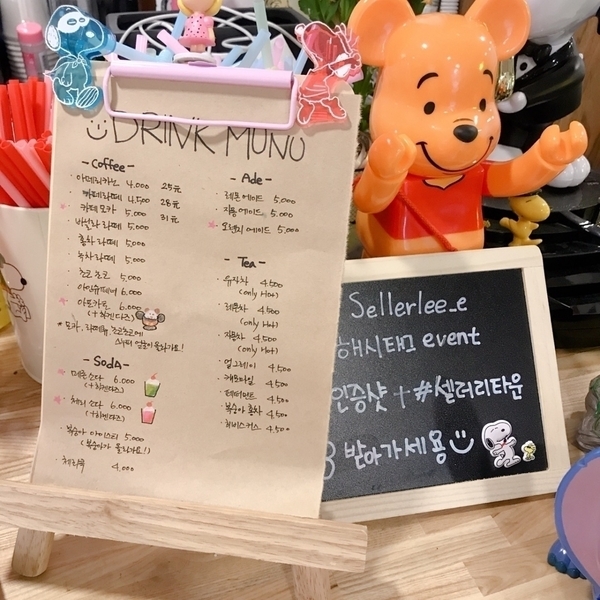 DRINK MUNU
- Coffee -
아메리카노 4.000 25元
카페라떼 4.500 28元
카페모카 5.000 31元
바닐라 라떼 5.000
홍차 라떼 5.000
녹차 라떼 5.000
초코 초코 5.000
아인슈페너 6.000
아포카토 6.000
(+하겐다즈)
* 모카, 라떼류, 초코초코에
올라가요!
- SodA -
메론 소다 6.000
(+하겐다즈)
체리 소다 6.000
(+하겐다즈)
복숭아 아이스티 5.000
(복숭아가 올라가요!)
4.000
- Ade -
레몬에이드 5.000
자몽에이드 5.000
오렌지 에이드 5.000
- Tea -
유자차 4.500
(only Hot)
레몬차 4.500
(only Hot)
자몽차 4.500
(only Hot)
얼그레이 4.500
캐모마일 4.500
페퍼민트 4.500
복숭아 홍차 4.500
히비스커스 4.500
Sellerlee_e
해시태그 event
인증샷 + #셀러리타운
받아가세용